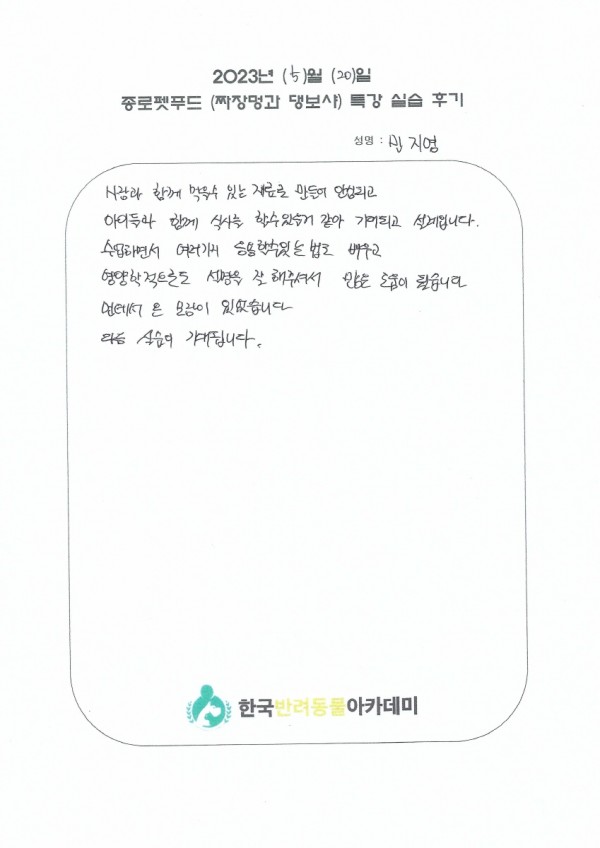 2023년 (5)월 (20)일
종로펫푸드 (짜장멍과 댕보샤) 특강 실습 후기
성명 : 민지영
사람과 함께 먹을수 있는 재료로 만들어 안심되고
아이들과 함께 식사를 할수있을거 같아 기대되고 설레입니다.
수업하면서 여러가지 응용할수있는 법도 배우고
영양학적으로도 설명을 잘 해주셔서 많은 도움이 됐습니다
멀리서 온 보람이 있었습니다
다음 실습이 기대됩니다.
한국반려동물아카데미